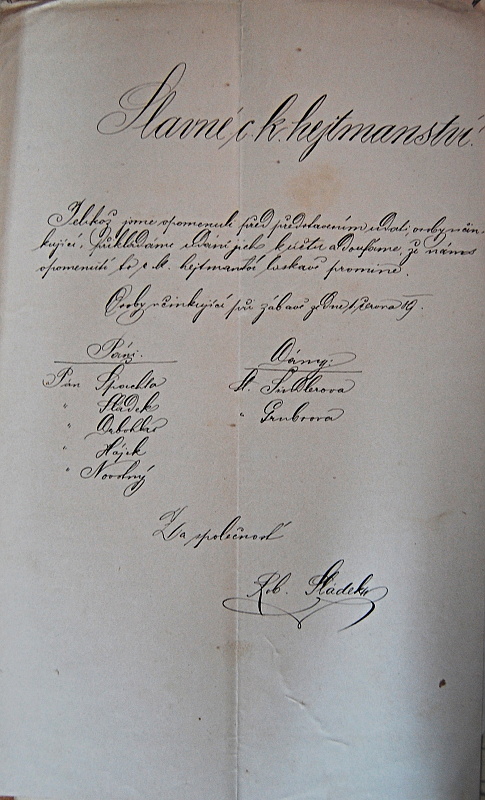 Slavné c. k. hejtmanství!
Jelikož jsme opomenuli před představením udati osoby účin-
kující, předkládáme udání jich a doufáme, že nám
opomenutí to c. k. hejtmanství laskavě promine.
Osoby účinkující při zábavě ze dne 1. února 19.
Páni: Dámy:
Pán Špachta Sl. Fiedlerova
" Sládek " Grubrova
" Hájek
" Novotný
Za společnost
Rob. Sládek